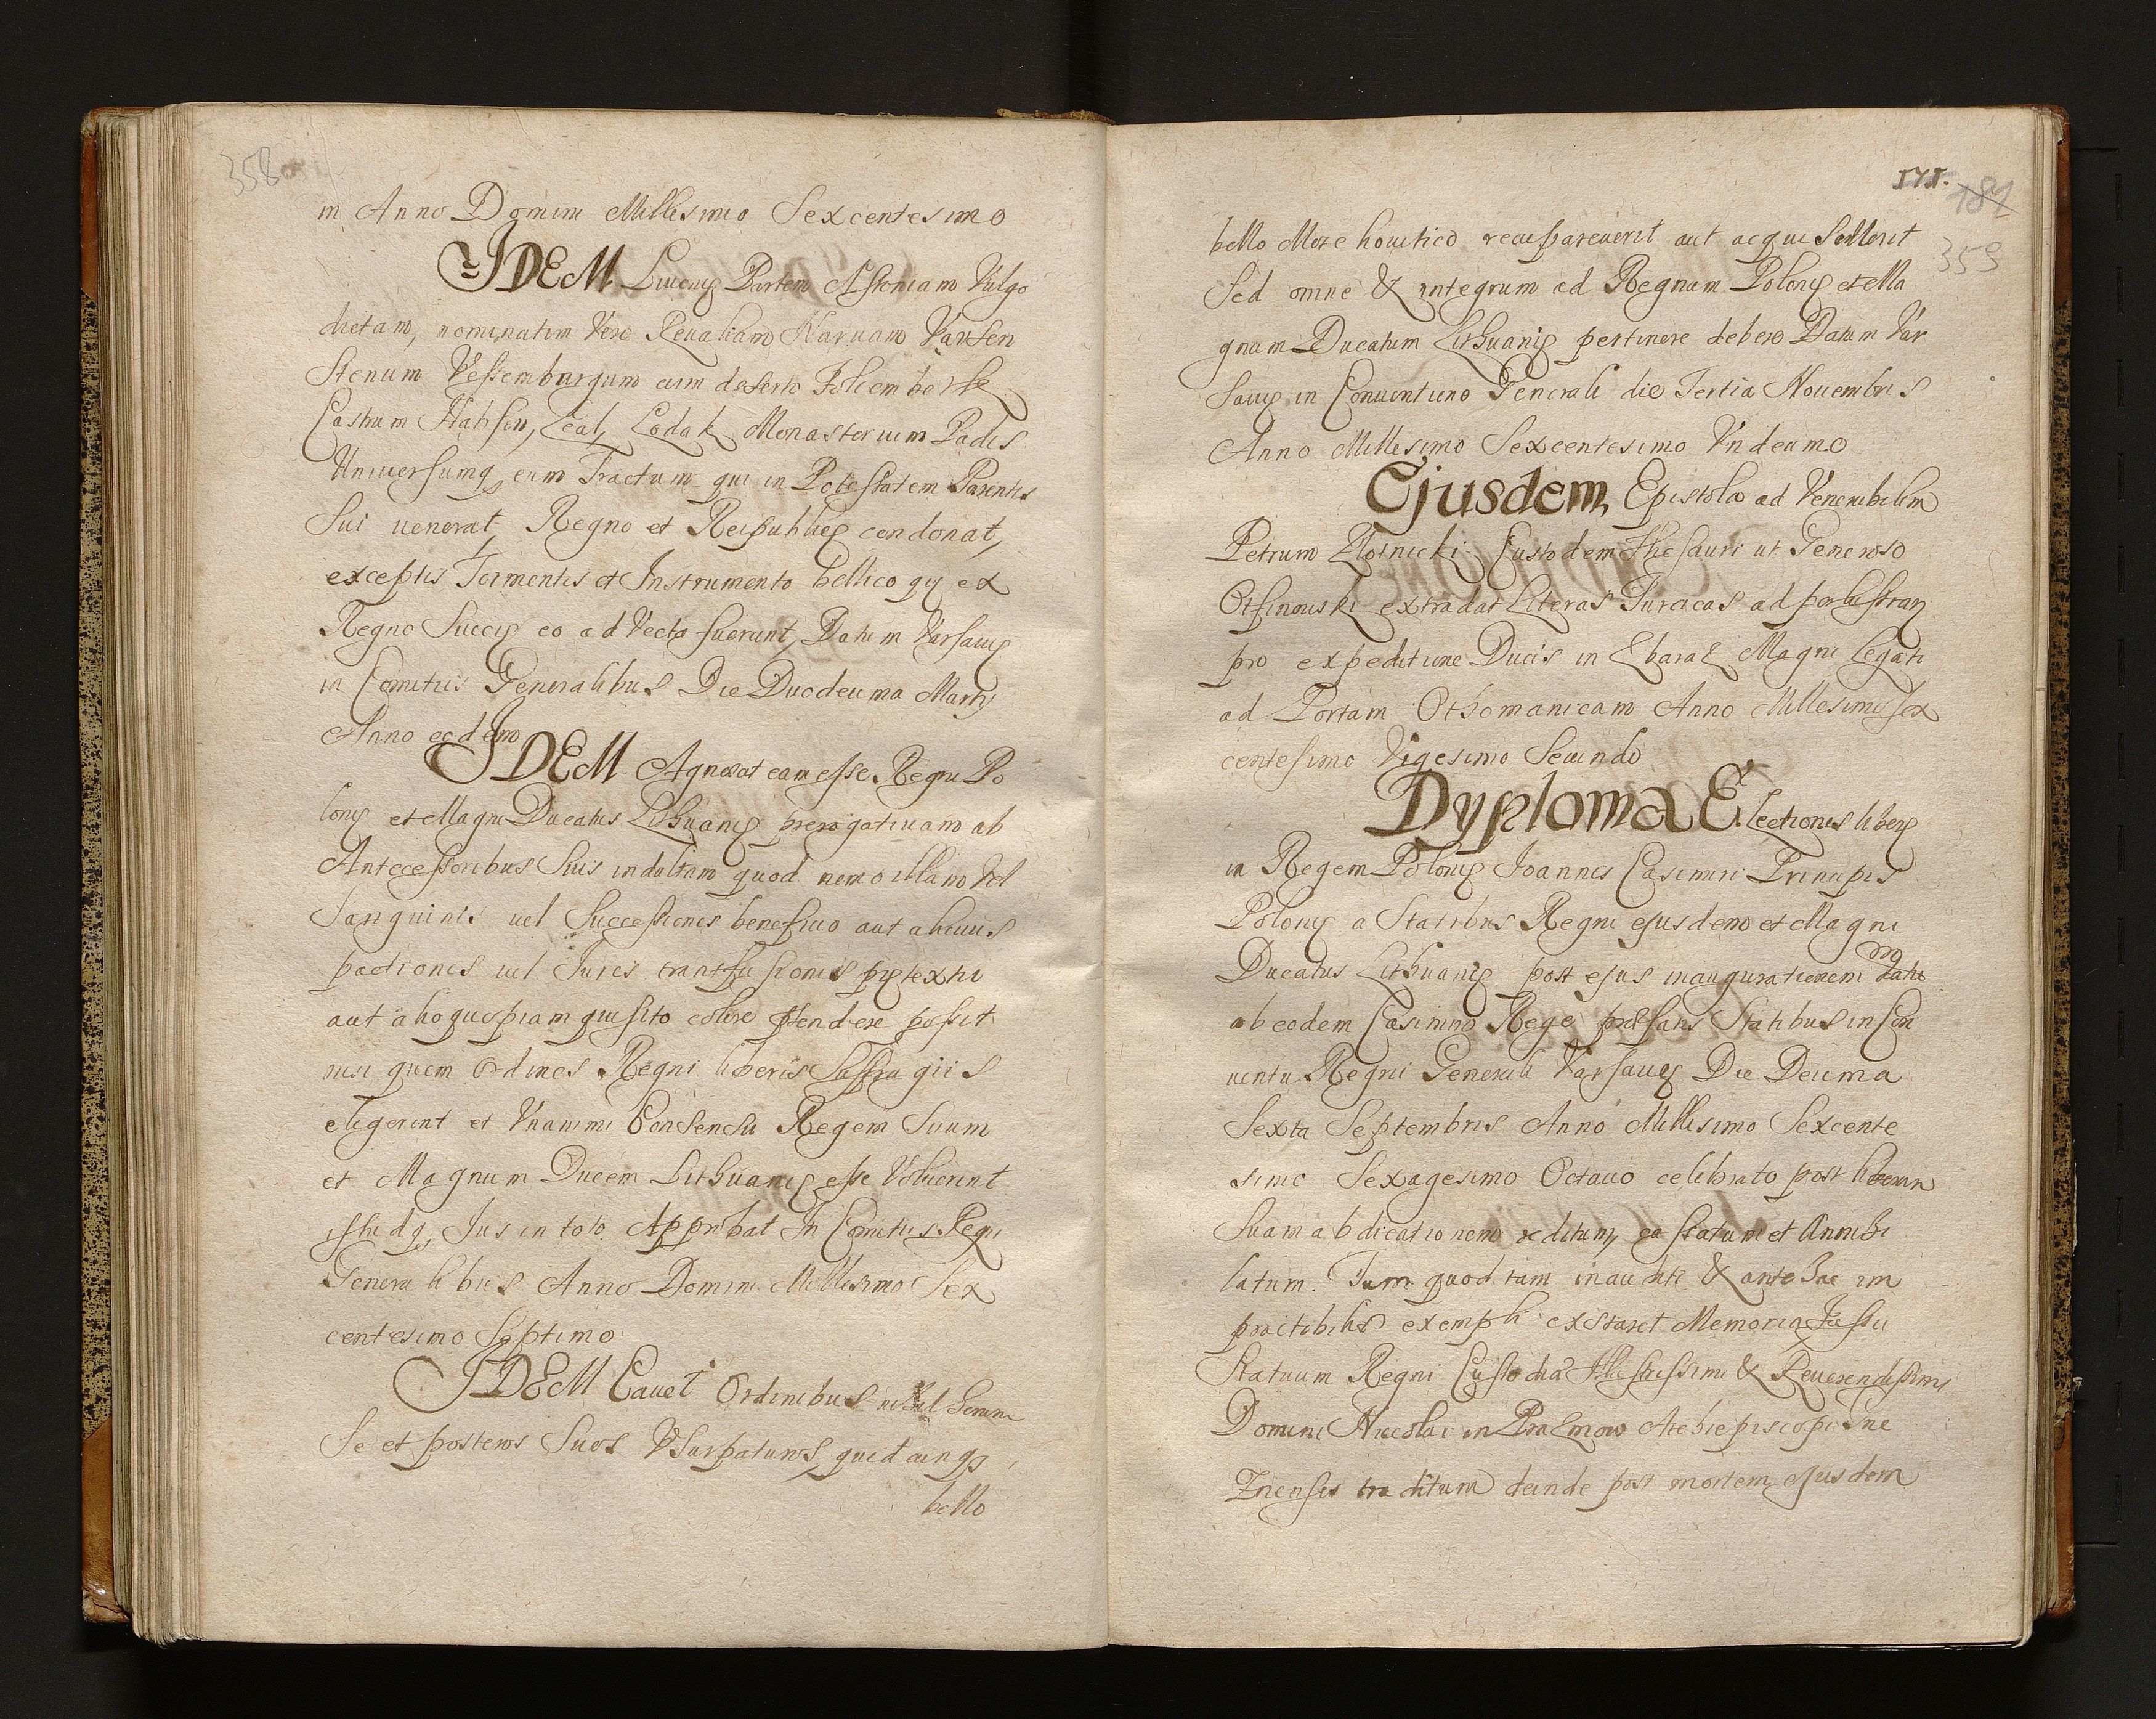 358
in Anno Domini Millesimo Sexcentesimo
IDEM Livonię Partem Estoniam Vulgo
dictam, nominatim Vero Reualiam Naruam Vansen
Stenum Vessemburgum cum deserto Tolcemberse
Castrum Habsen, Leal, Lodak Monasterium Padis
Uniuersumq, eum Tractum qui in Potestatem Parentis
Sui uenerat, Regno et Reipublicę condonat,
exceptis Tormentis et Instrumento bellico quę ex
Regno Suecię eo ad Vecta fuerunt, Datum Varsauię
in Comitiis Generalibus Die Duodecima Martij
Anno eodem
IDEM Agnoscit eam esse Regni Po
lonię et Magni Ducatus Lithuanię prerogatiuam ab
Antecessoribus Suis indultam quod nemo illam Vel
Sanguinis uel Successionis beneficio aut alicuius
pactionis uel Juris transfusionis prętextu
aut alio quopiam quesito colore prtendere possit
nisi quem Ordines Regni liberis Suffragiis
eligerint et Vnanimi Consensu Regem Suum
et Magnum Ducem Lithuanię esse Voluerint
istudq, Jus in toto Approbat In Comitiis Regni
Generalibus Anno Domini Millesimo Sex
centesimo Septimo
IDEM Cauet Ordinibus nihil Homini
Se et posteros Suos Vsurpaturos, quidcunq,
bello
171.
181
359
bello More houstico recuparauerit aut acquisiuerit
Sed omne & integrum ad Regnum Polonię et Ma
gnum Ducatum Lithuanię pertinere debere Datum Var
sauię in Conuentione Generali die Tertia Nouembris
Anno Millesimo Sexcentesimo Vndecimo
Ejusdem Epistola ad Venerabilem
Petrum Zlotnicki Custodem Thesauri ut Generoso
Otfinowski extradat Literas Turcicas ad perlustran
pro expeditione Ducis in Zbaraz Magni Legati
ad Portam Othomanicam Anno Millesimo Sex
centesimo Vigesimo Secundo
Dyploma Electionis liberę
in Regem Polonię Joannis Casimiri Principis
Polonię a Statibus Regni ejusdem et Magni
Ducatus Lithuanię post ejus inaugurationem
ab eodem Casimiro Rege Statibus in Con
uentu Regni Generali Varsauię Die Decima
Sexta Septembris Anno Millesimo Sexcente
simo Sexagesimo Octauo celebrato post liberam
Suam abdicationem reditum, ca statum et Annihi
latum. Tum quod tam inaudite & ante hac im
practibilis exempli exstaret Memoria Jussu
Statuum Regni Custodia Illustrissimi & Reuerendissimi
Domini Nicolai in Prazmow Archiepiscopi Gne
Znensis traditum deinde post mortem ejusdem